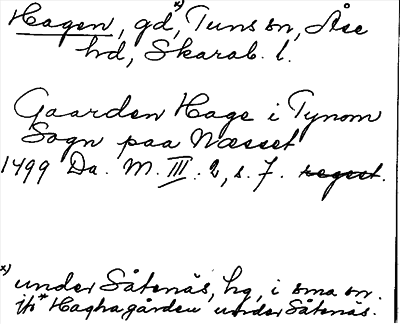 Hagen, gd,ˣ⁾ Tuns sn, Åse
hd, Skarab. l.
Gaarden Hage i Tynom
Sogn paa Næsset
1499 Da. M. III. 2, s. 7. regest.
ˣ⁾ under Såtenäs, hg, i sma sn.
jfr * Haghagården under Såtenäs.